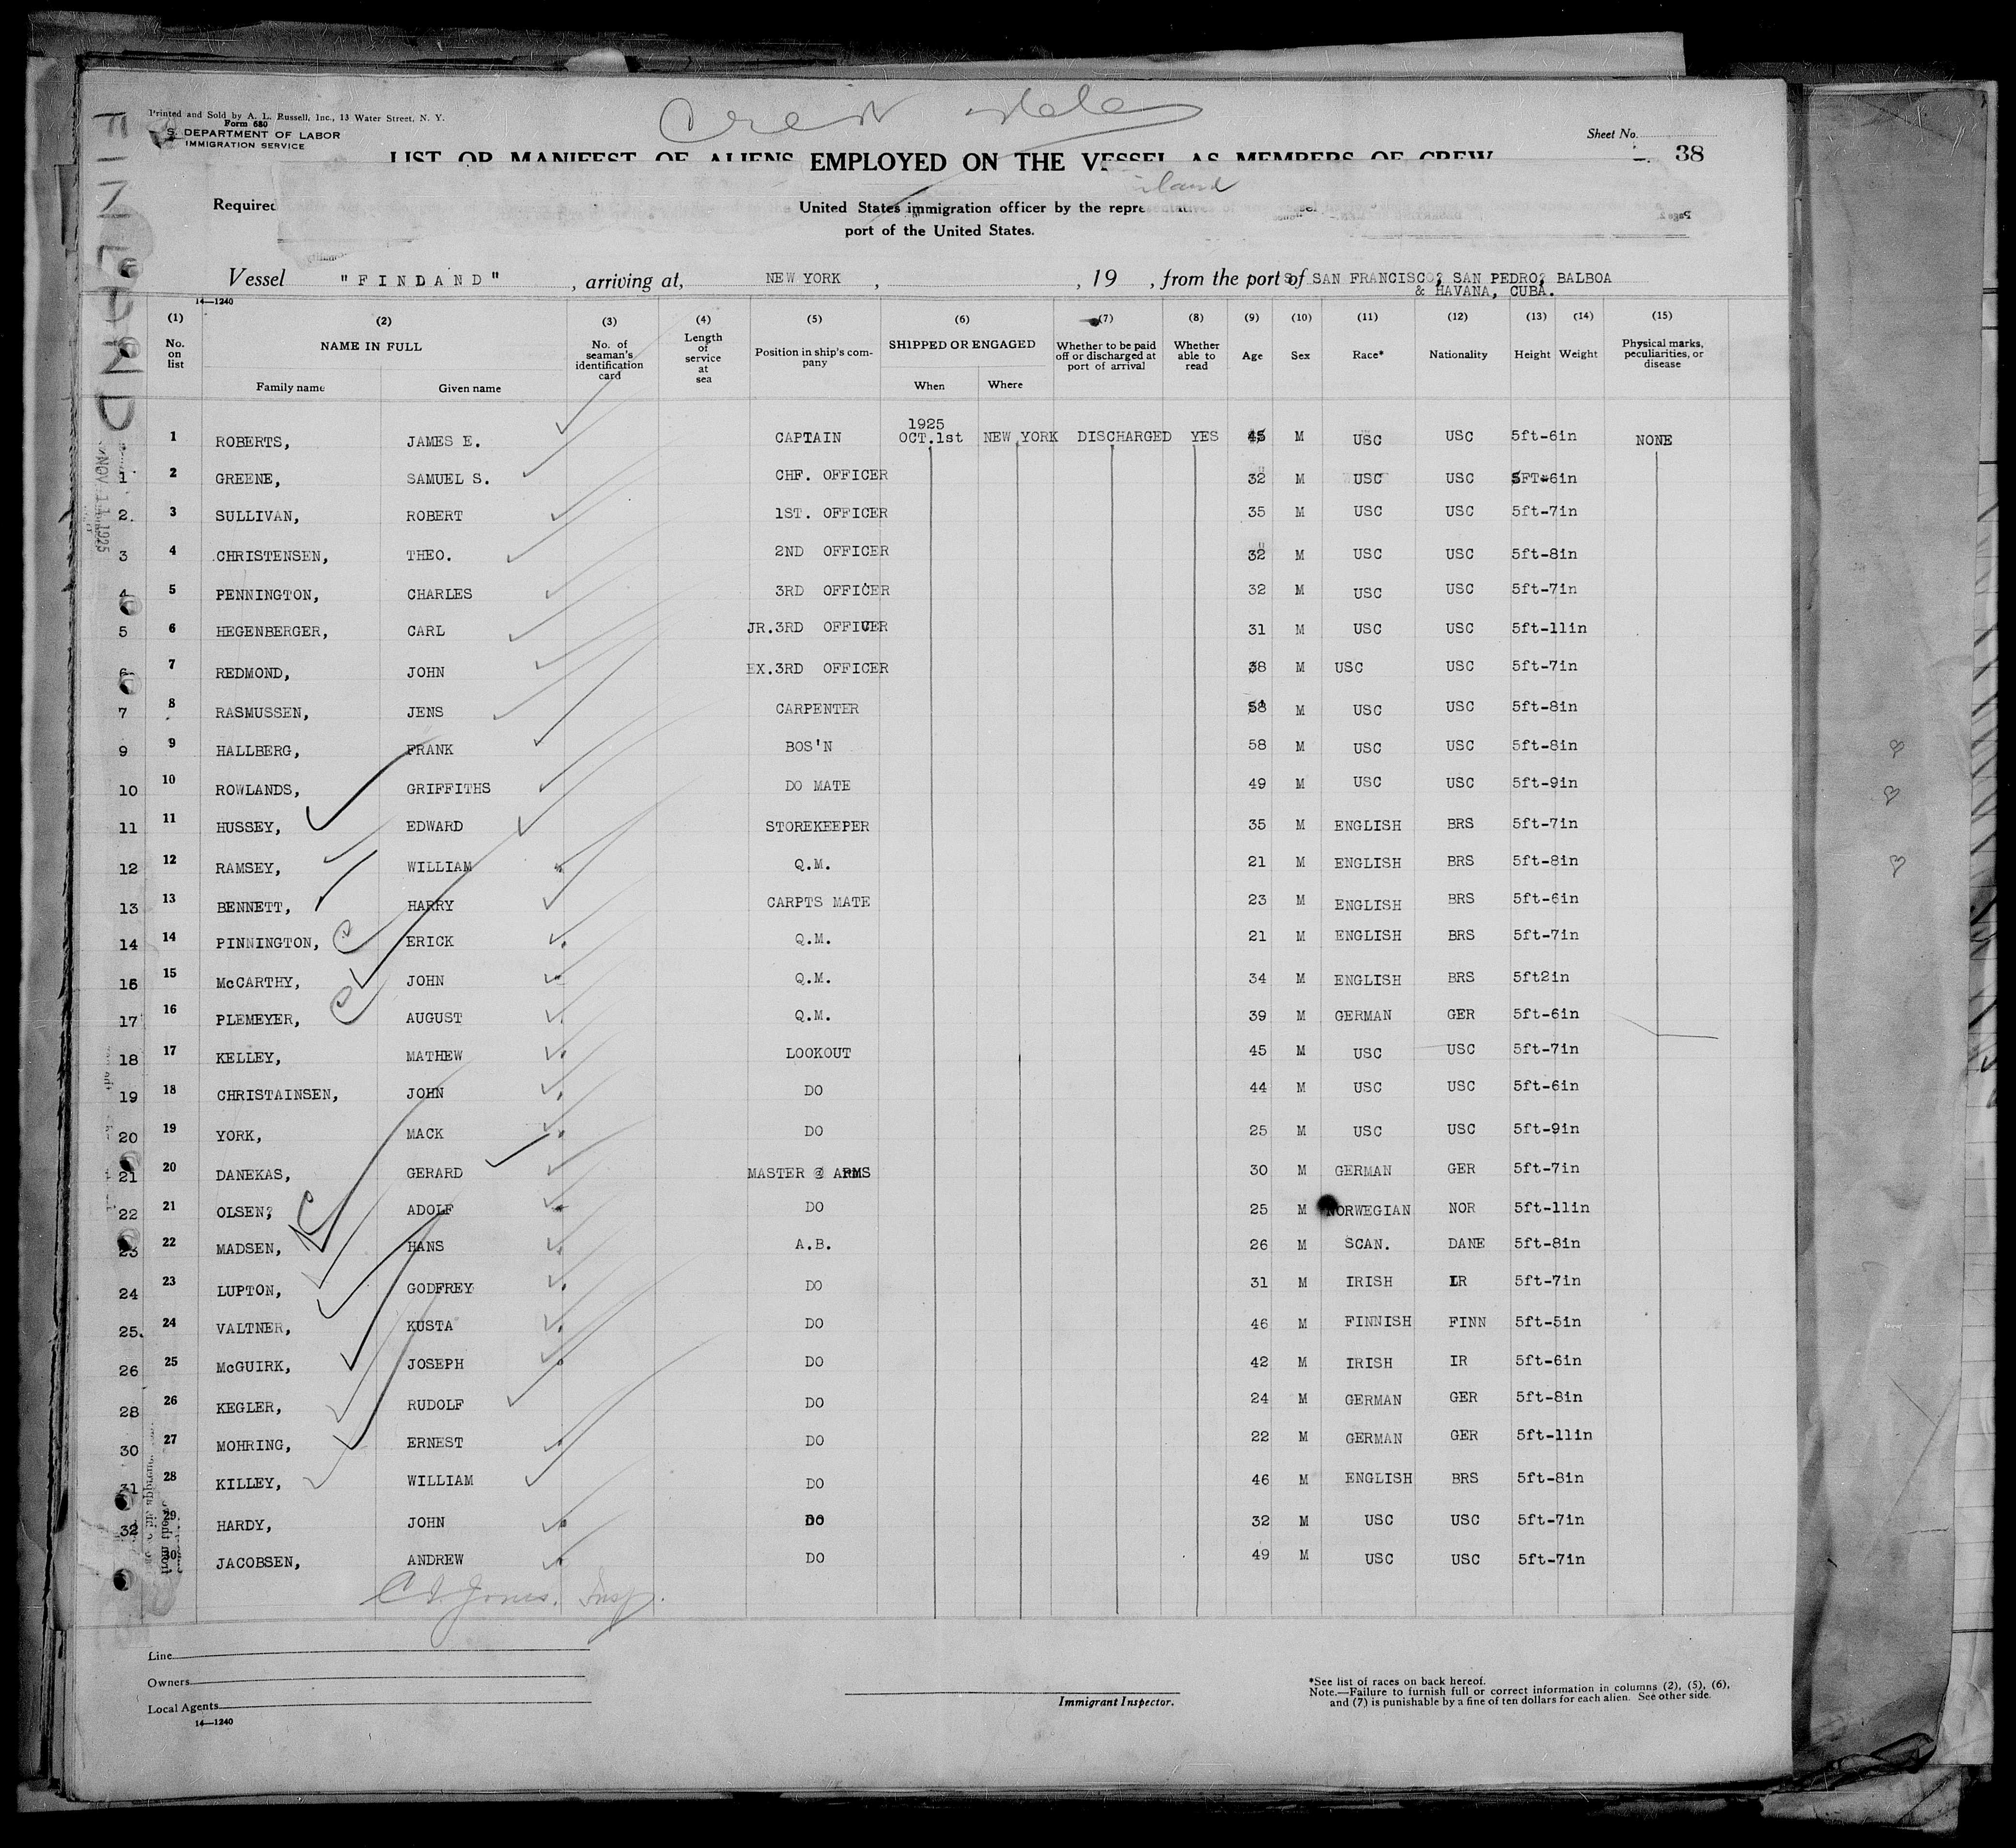 Crew
Printed and Sold by A. L. Russell, Inc., 13 Water Street, N. Y.
Form 680
S. DEPARTMENT OF LABOR
IMMIGRATION SERVICE
Sheet No.
38
LIST OR MANIFEST OF ALIENS EMPLOYED ON THE VESSEL AS MEMBERS OF CREW
Required United States immigration officer by the
port of the United States.
FINLAND
Vessel "FINDAND", arriving at, NEW YORK, , 19 , from the ports of SAN FRANCISCO, SAN PEDRO, BALBOA
& HAVANA, CUBA.
14—1240
(1) (2) (3) (4) (5) (6) (7) (8) (9) (10) (11) (12) (13) (14) (15)
No. on list NAME IN FULL No. of seaman's identification card Length of service at sea Position in ship's company SHIPPED OR ENGAGED Whether to be paid off or discharged at port of arrival Whether able to read Age Sex Race* Nationality Height Weight Physical marks, peculiarities, or disease
Family name Given name When Where
1925
1 ROBERTS, JAMES E. CAPTAIN OCT.1st NEW YORK DISCHARGED YES 45 M USC USC 5ft-6in NONE
1 2 GREENE, SAMUEL S. CHF. OFFICER 32 M USC USC 5FT-6in
2 3 SULLIVAN, ROBERT 1ST. OFFICER 35 M USC USC 5ft-7in
3 4 CHRISTENSEN, THEO. 2ND OFFICER 32 M USC USC 5ft-8in
4 5 PENNINGTON, CHARLES 3RD OFFICER 32 M USC USC 5ft-7in
5 6 HEGENBERGER, CARL JR.3RD OFFICER 31 M USC USC 5ft-11in
6 7 REDMOND, JOHN EX.3RD OFFICER 38 M USC USC 5ft-7in
7 8 RASMUSSEN, JENS CARPENTER M USC USC 5ft-8in
9 9 HALLBERG, FRANK BOS'N 58 M USC USC 5ft-8in
10 10 ROWLANDS, GRIFFITHS DO MATE 49 M USC USC 5ft-9in
11 11 HUSSEY, EDWARD STOREKEEPER 35 M ENGLISH BRS 5ft-7in
12 12 RAMSEY, WILLIAM Q.M. 21 M ENGLISH BRS 5ft-8in
13 13 BENNETT, HARRY CARPTS MATE 23 M ENGLISH BRS 5ft-6in
14 14 PINNINGTON, ERICK Q.M. 21 M ENGLISH BRS 5ft-7in
16 15 McCARTHY, JOHN Q.M. 34 M ENGLISH BRS 5ft2in
17 16 PLEMEYER, AUGUST Q.M. 39 M GERMAN GER 5ft-6in
18 17 KELLEY, MATHEW LOOKOUT 45 M USC USC 5ft-7in
19 18 CHRISTAINSEN, JOHN DO 44 M USC USC 5ft-6in
20 19 YORK, MACK DO 25 M USC USC 5ft-9in
21 20 DANEKAS, GERARD MASTER @ ARMS 30 M GERMAN GER 5ft-7in
22 21 OLSEN, ADOLF DO 25 M NORWEGIAN NOR 5ft-11in
23 22 MADSEN, HANS A.B. 26 M SCAN. DANE 5ft-8in
24 23 LUPTON, GODFREY DO 31 M IRISH IR 5ft-7in
25. 24 VALTNER, KUSTA DO 46 M FINNISH FINN 5ft-5in
26 25 McGUIRK, JOSEPH DO 42 M IRISH IR 5ft-6in
28 26 KEGLER, RUDOLF DO 24 M GERMAN GER 5ft-8in
30 27 MOHRING, ERNEST DO 22 M GERMAN GER 5ft-11in
31 28 KILLEY, WILLIAM DO 46 M ENGLISH BRS 5ft-8in
32 29 HARDY, JOHN DO 32 M USC USC 5ft-7in
30 JACOBSEN, ANDREW DO 49 M USC USC 5ft-7in
Jones. Insp.
Line
Owners
Local Agents
14—1240
Immigrant Inspector.
*See list of races on back hereof.
Note.—Failure to furnish full or correct information in columns (2), (5), (6),
and (7) is punishable by a fine of ten dollars for each alien. See other side.